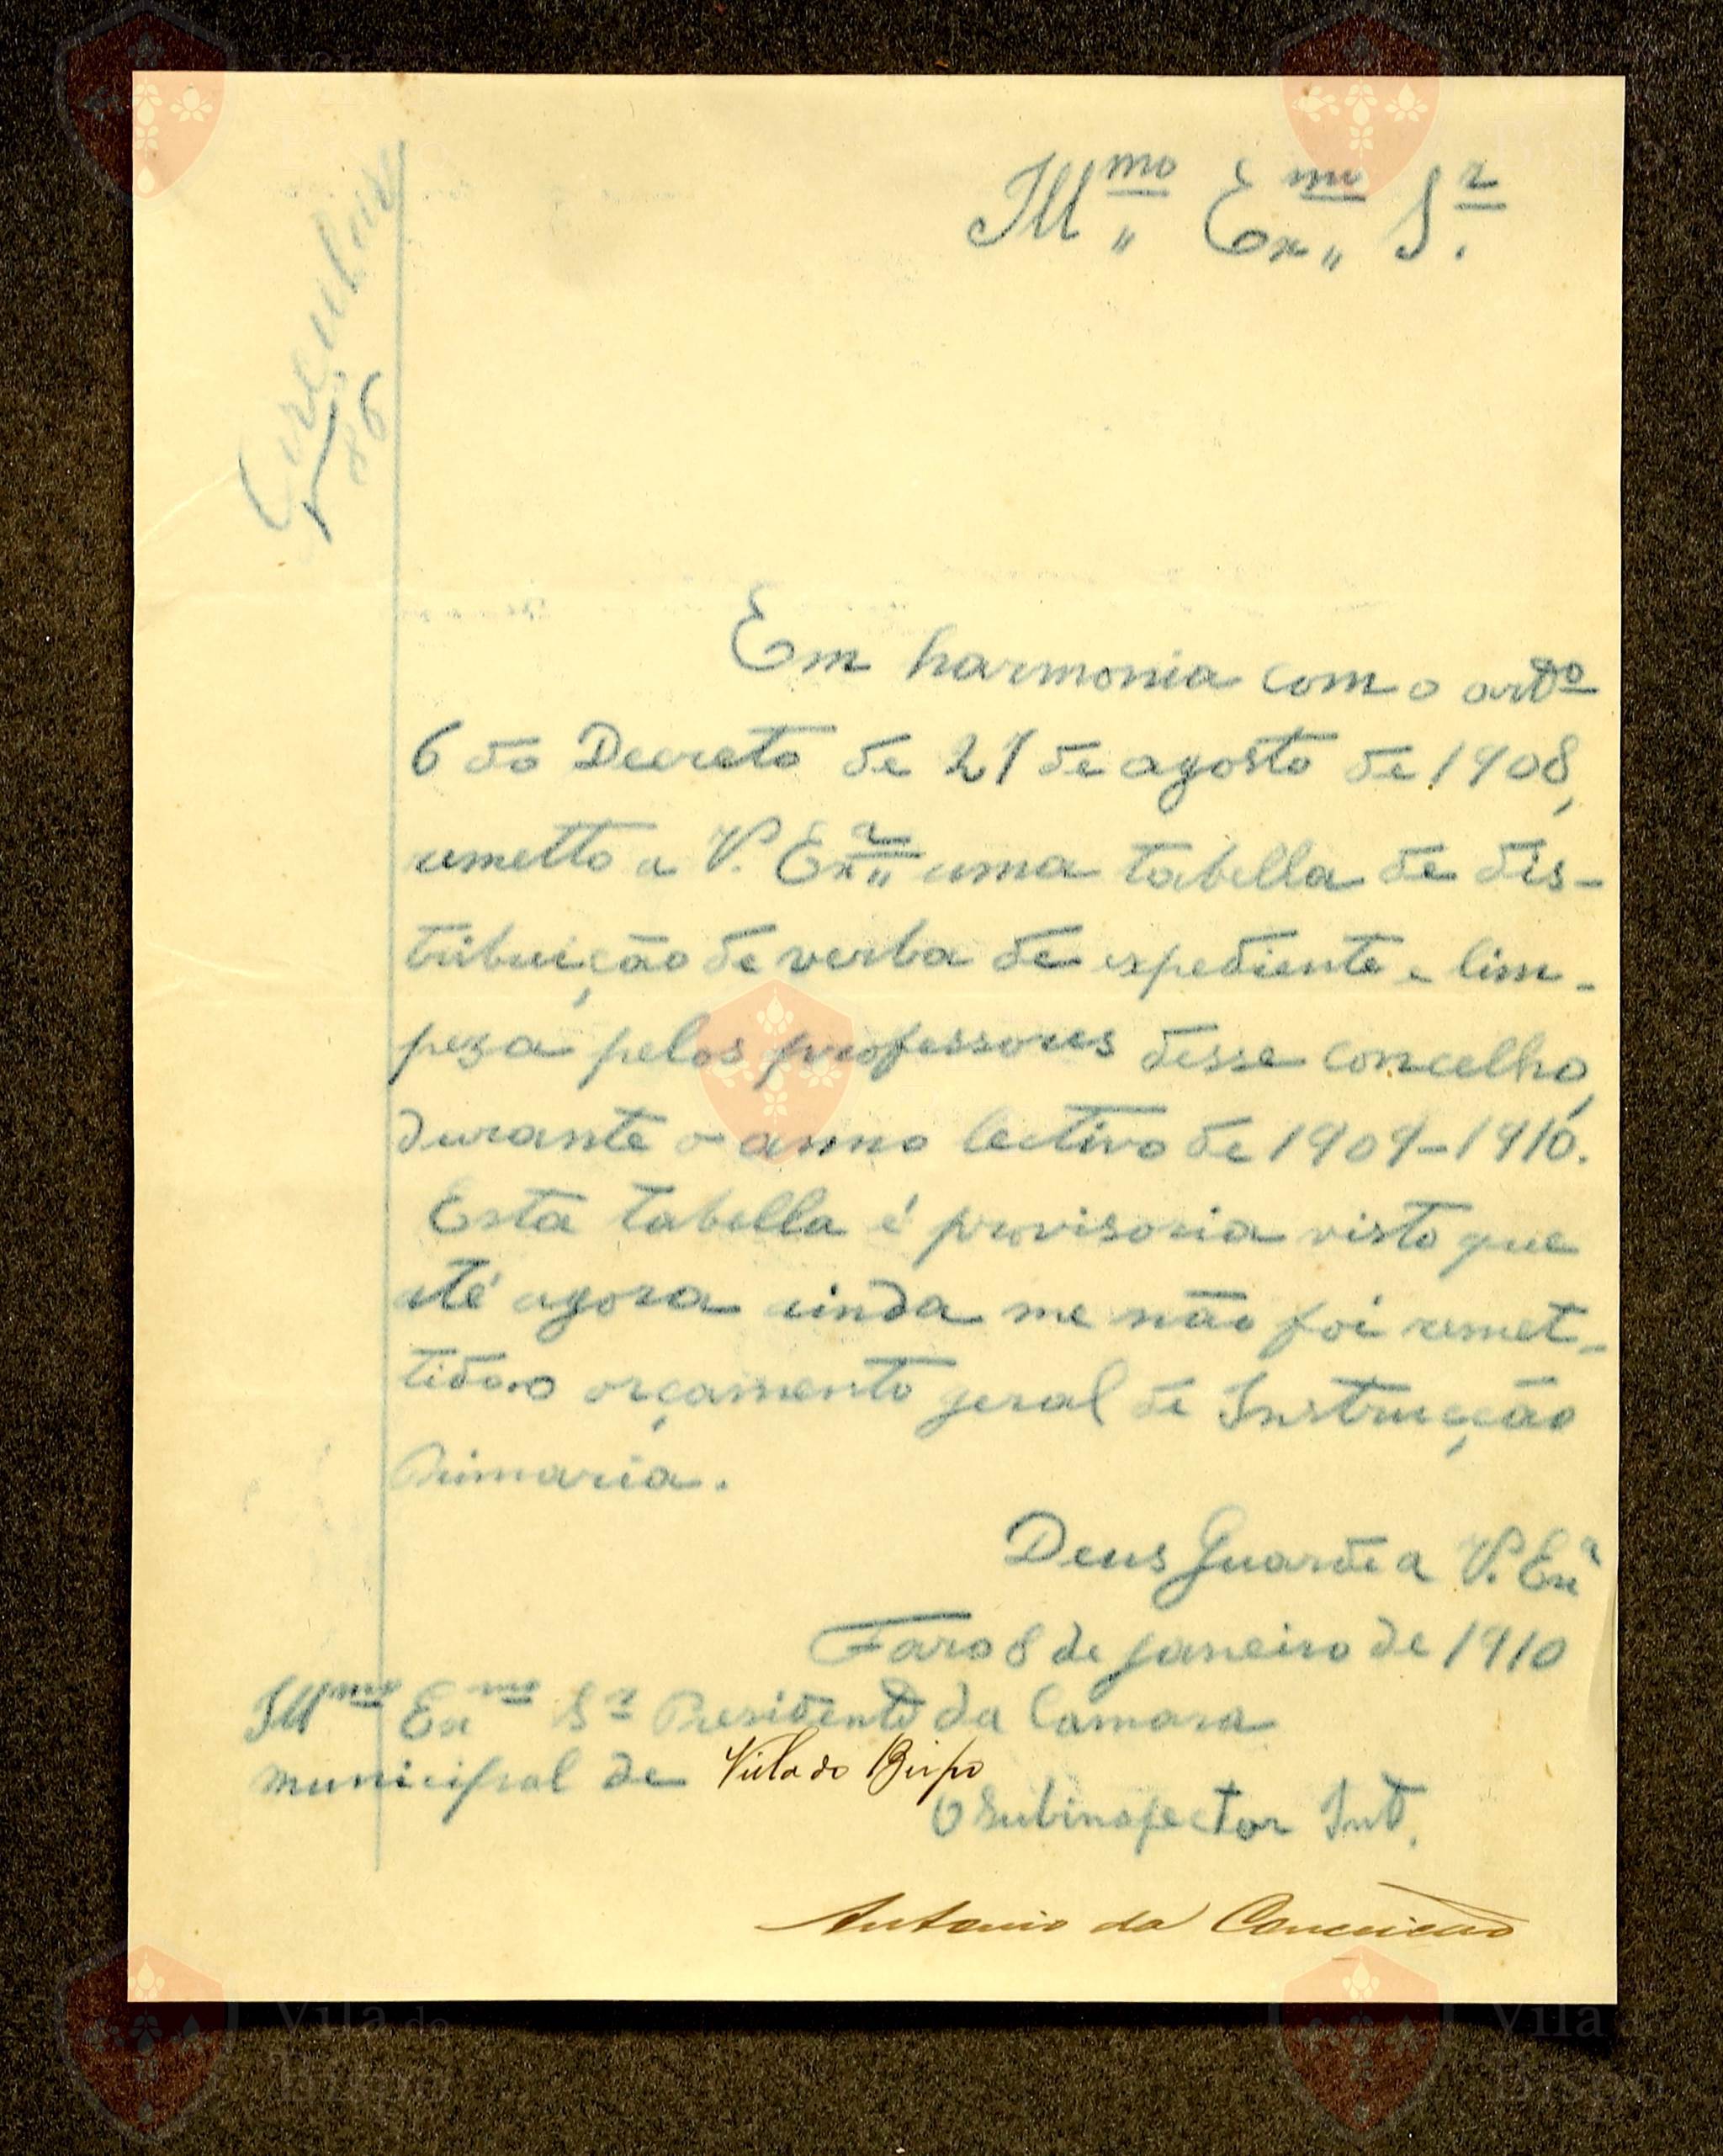 Circular
86
Ill.mo Ex.mo S.r
Em harmonia com o artº
6 do Decreto de 27 de agosto de 1908,
remetto a V. Ex.ª uma tabella de dis-
tribuição de verba de expediente e lim-
peza pelos professores desse concelho,
durante o anno lectivo de 1909-1910.
Esta tabella é provisoria visto que
até agora ainda me não foi remet-
tido o orçamento geral de Instrucção
Primaria.
Deus Guarde a V. Exª
Faro 8 de janeiro de 1910
Illmo Exmo Sr Presidente da Camara
municipal de Villa do Bispo
O Subinspector Int.
Antonio da Conceição
Vila do
Bispo
Vila do
Bispo